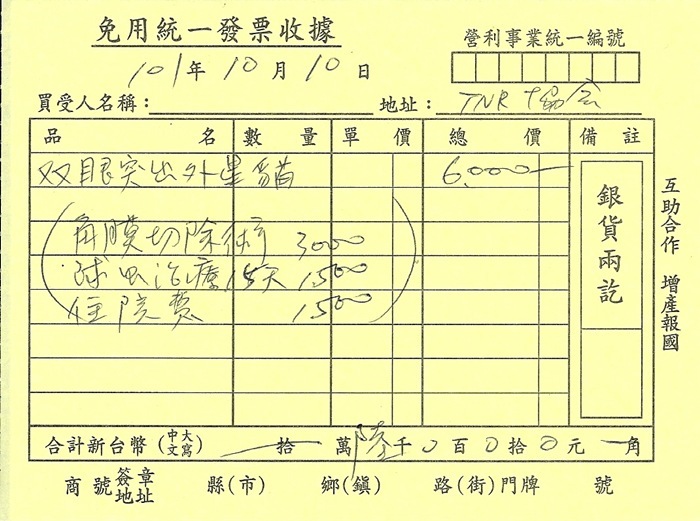 免用統一發票收據
營利事業統一編號
101年10月10日
買受人名稱： 地址： TNR 協会
品名 數量 單價 總價 備註
双眼突出外星貓 6,000
角膜切除術 3000
球虫治療15天 1500
住院費 1500
銀貨兩訖
合計新台幣（中文大寫） 拾 萬 陸千0百0拾0元 角
商號簽章地址 縣(市) 鄉(鎮) 路(街)門牌 號
互助合作 增產報國